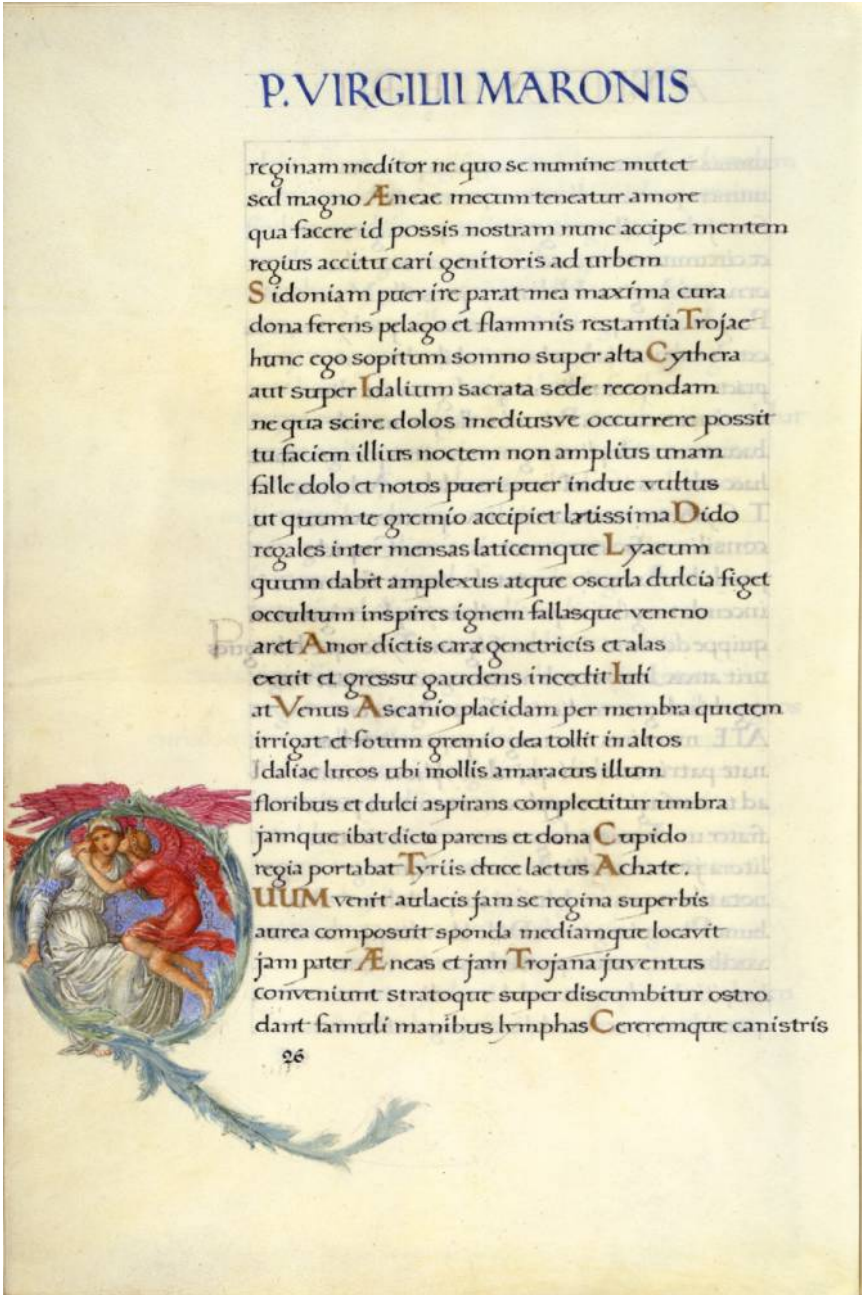 P. VIRGILII MARONIS
reginam meditor ne quo se numine mutet
sed magno Æneae mecum teneatur amore
qua facere id possis nostram nunc accipe mentem
regius accitu cari genitoris ad urbem
Sidoniam puer ire parat mea maxima cura
dona ferens pelago et flammis restantia Trojae
hunc ego sopitum somno super alta Cythera
aut super Idalium sacrata sede recondam
ne qua scire dolos mediusve occurrere possit
tu faciem illius noctem non amplius unam
falle dolo et notos pueri puer indue vultus
ut quum te gremio accipiet lætissima Dido
regales inter mensas laticemque Lyaeum
quum dabit amplexus atque oscula dulcia figet
occultum inspires ignem fallasque veneno
Paret Amor dictis caræ genetricis et alas
exuit et gressu gaudens incedit Iuli
at Venus Ascanio placidam per membra quietem
irrigat et fotum gremio dea tollit in altos
Idaliae lucos ubi mollis amaracus illum
floribus et dulci aspirans complectitur umbra
jamque ibat dicto parens et dona Cupido
regia portabat Tyriis duce laetus Achate.
QUUM venit aulaeis jam se regina superbis
aurea composuit sponda mediamque locavit
jam pater Æneas et jam Trojana juventus
conveniunt stratoque super discumbitur ostro
dant famuli manibus lymphas Cereremque canistris
26